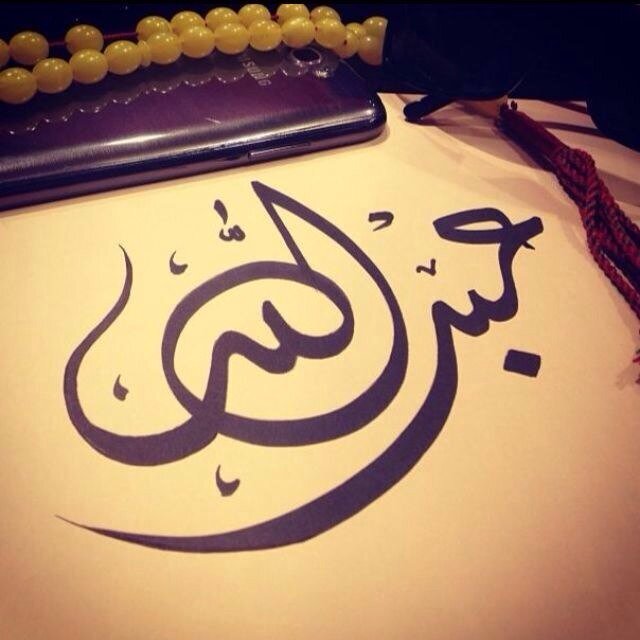 عبد الله